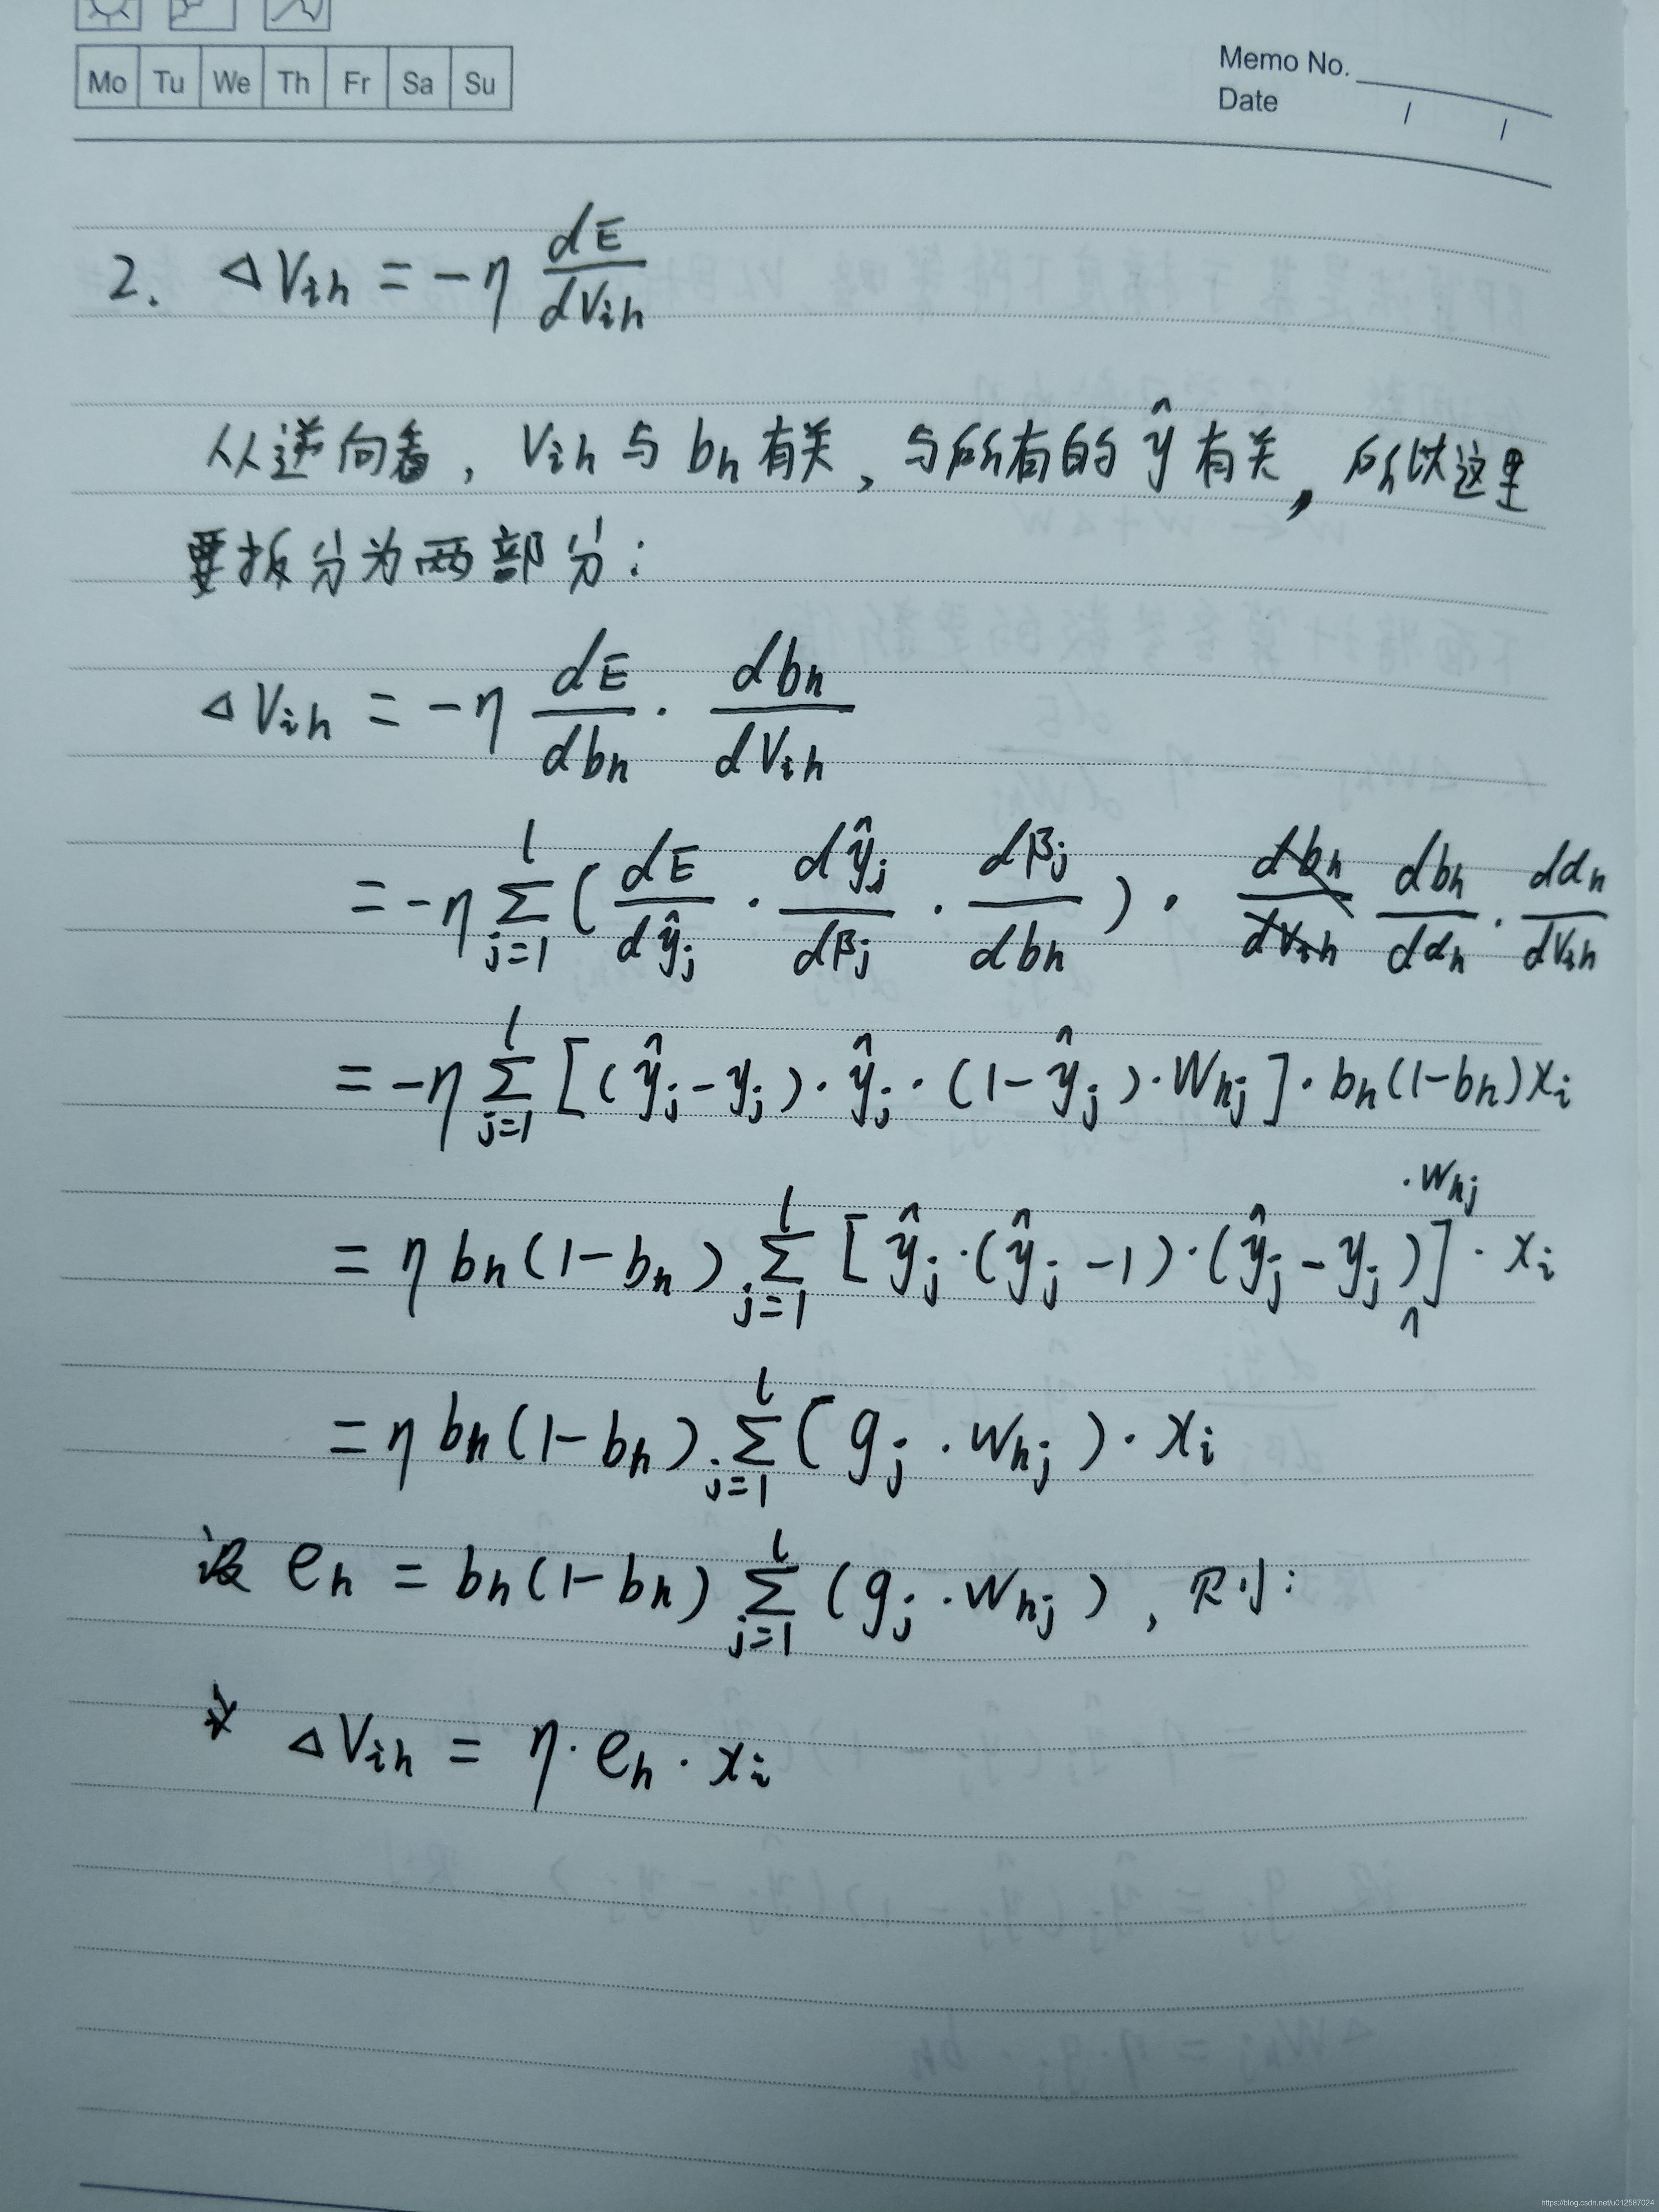 Mo Tu We Th Fr Sa Su
Memo No.
Date / /
2. ΔVih = -η dE/dVih
从逆向看，Vih与bh有关，与所有的ŷ有关，所以这里
要拆分为两部分：
ΔVih = -η dE/dbh · dbh/dVih
= -η Σ(j=1→l) (dE/dŷj · dŷj/dβj · dβj/dbh) · dbh/dVih dbh/dαh · dαh/dVih
= -η Σ(j=1→l) [(ŷj-yj)·ŷj·(1-ŷj)·Whj]·bh(1-bh)xi
= η bh(1-bh) Σ(j=1→l) [ŷj·(ŷj-1)·(ŷj-yj)·Whj]·xi
= η bh(1-bh) Σ(j=1→l) (gj·Whj)·xi
设 eh = bh(1-bh) Σ(j=1→l) (gj·Whj)，则：
ΔVih = η·eh·xi
https://blog.csdn.net/u012587024